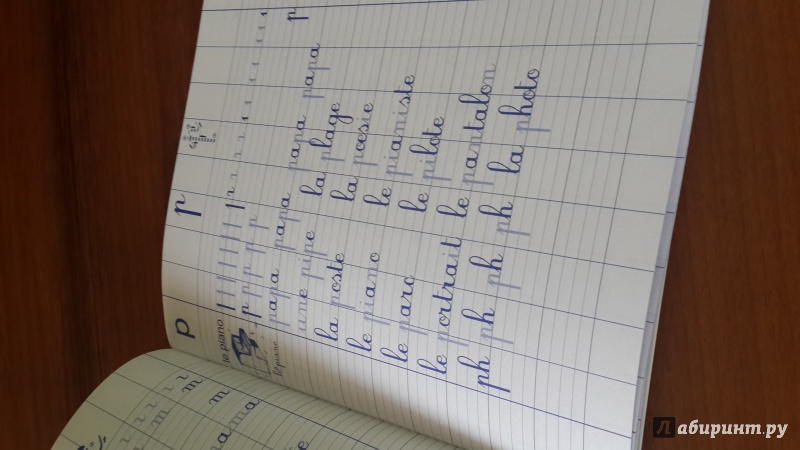 p p
le piano
le piano
p p p p p
papa papa papa papa p
une pipe la plage
la poste la poésie
le piano le pianiste
le parc le pilote
le portrait le pantalon
ph ph ph ph la photo
m
m
Лабиринт.ру